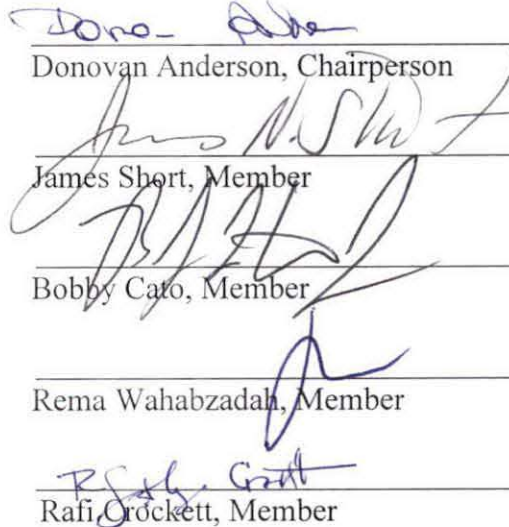 Donovan Anderson, Chairperson
James N. Short
James Short, Member
Bobby Cato, Member
Rema Wahabzadah, Member
Rafi Crockett, Member